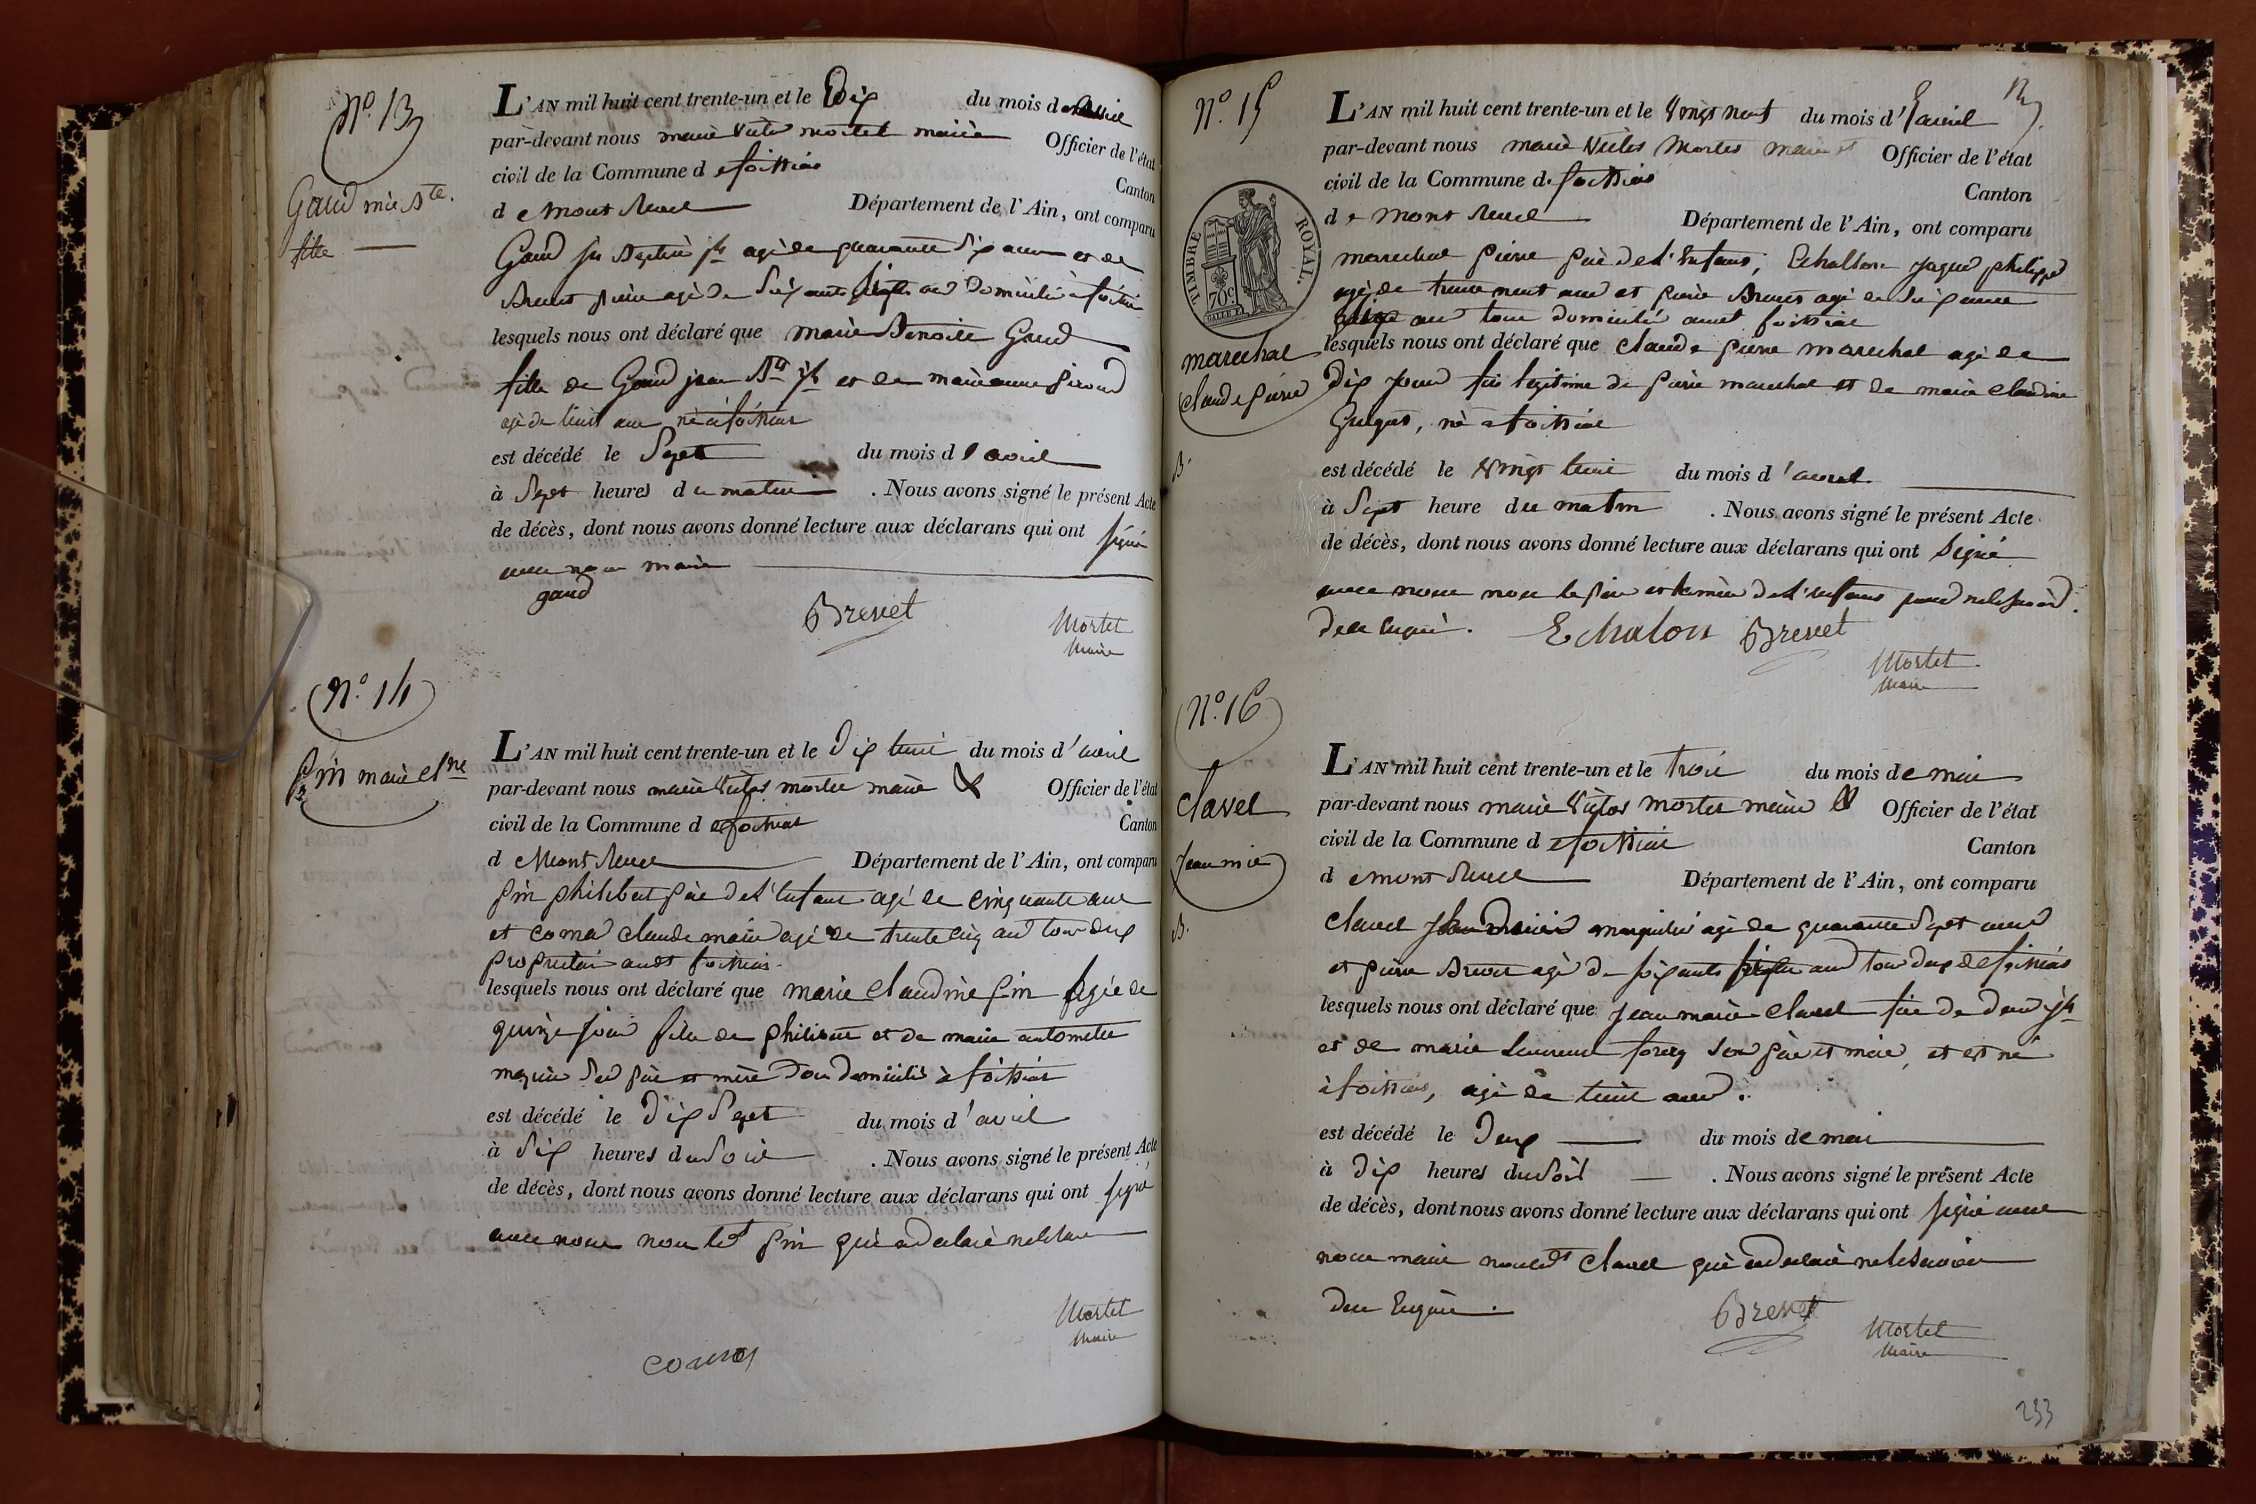 N.° 13
Gaud mie Bte.
fille
L'AN mil huit cent trente-un et le Dix du mois d avril
par-devant nous marie victor mortel maire Officier de l'état
civil de la Commune d e foissiat Canton
d e Mont revel Département de l'Ain, ont comparu
Gaud jn Baptiste agé de quarante six ans et de
Brevet pierre agé de soixante ans domicilié a foissiat
lesquels nous ont déclaré que marie Benoite Gaud
fille de Gaud jean Bte et de marie anne
agé de huit ans né a foissiat
est décédé le Sept du mois d'avril
à Sept heures du matin . Nous avons signé le présent Acte
de décès, dont nous avons donné lecture aux déclarans qui ont signé
avec nous maire
gaud
Brevet
Mortel
Maire
N.° 14
Pin marie clne
L'AN mil huit cent trente-un et le Dix huit du mois d'avril
par-devant nous marie victor mortel maire & Officier de l'état
civil de la Commune d e foissiat Canton
d e Mont revel Département de l'Ain, ont comparu
Pin philibert père de l'enfant agé de cinquante ans
et claude marie agé de trente cinq ans tous deux
propriétaire audt foissiat
lesquels nous ont déclaré que marie claudine Pin agée de
quinze jours fille de philibert et de marie
ses père et mère domiciliés à foissiat
est décédé le Dix Sept du mois d'avril
à Six heures du Soir . Nous avons signé le présent Acte
de décès, dont nous avons donné lecture aux déclarans qui ont signé
avec nous non led Pin qui a déclaré ne le savoir
Mortel
Maire
N.° 15
marechal
claude pierre
B.
TIMBRE ROYAL.
70c
L'AN mil huit cent trente-un et le vingt neuf du mois d'avril
par-devant nous marie victor Mortel maire et Officier de l'état
civil de la Commune d e foissiat Canton
d e Mont revel Département de l'Ain, ont comparu
marechal pierre père de l'enfant, Echallon jaque philippe
agé de trente neuf ans et pierre Brevet agé de soixante
ans tous domicilié audt foissiat
lesquels nous ont déclaré que claude pierre marechal agé de
dix jours fils légitime de pierre marechal et de marie claudine
né a foissiat
est décédé le vingt huit du mois d'avril
à Sept heure du matin . Nous avons signé le présent Acte
de décès, dont nous avons donné lecture aux déclarans qui ont Signé
avec nous non le père de l'enfant pour ne le savoir
de ce enquis.
Echalon Brevet
Mortel
Maire
N.° 16
Clavel
Jean mie
B.
L'AN mil huit cent trente-un et le trois du mois de mai
par-devant nous marie victor mortel maire & Officier de l'état
civil de la Commune d e foissiat Canton
d e mont revel Département de l'Ain, ont comparu
Clavel agé de quarante Sept ans
et pierre Brevet agé de soixante ans tous deux de foissiat
lesquels nous ont déclaré que jean marie Clavel fils de
et de marie ses père et mère, et est né
à foissiat, agé de huit ans.
est décédé le Deux du mois de mai
à dix heures du Soir . Nous avons signé le présent Acte
de décès, dont nous avons donné lecture aux déclarans qui ont signé avec
nous maire non led Clavel qui a déclaré ne le savoir
de ce enquis.
Brevet
Mortel
Maire
233